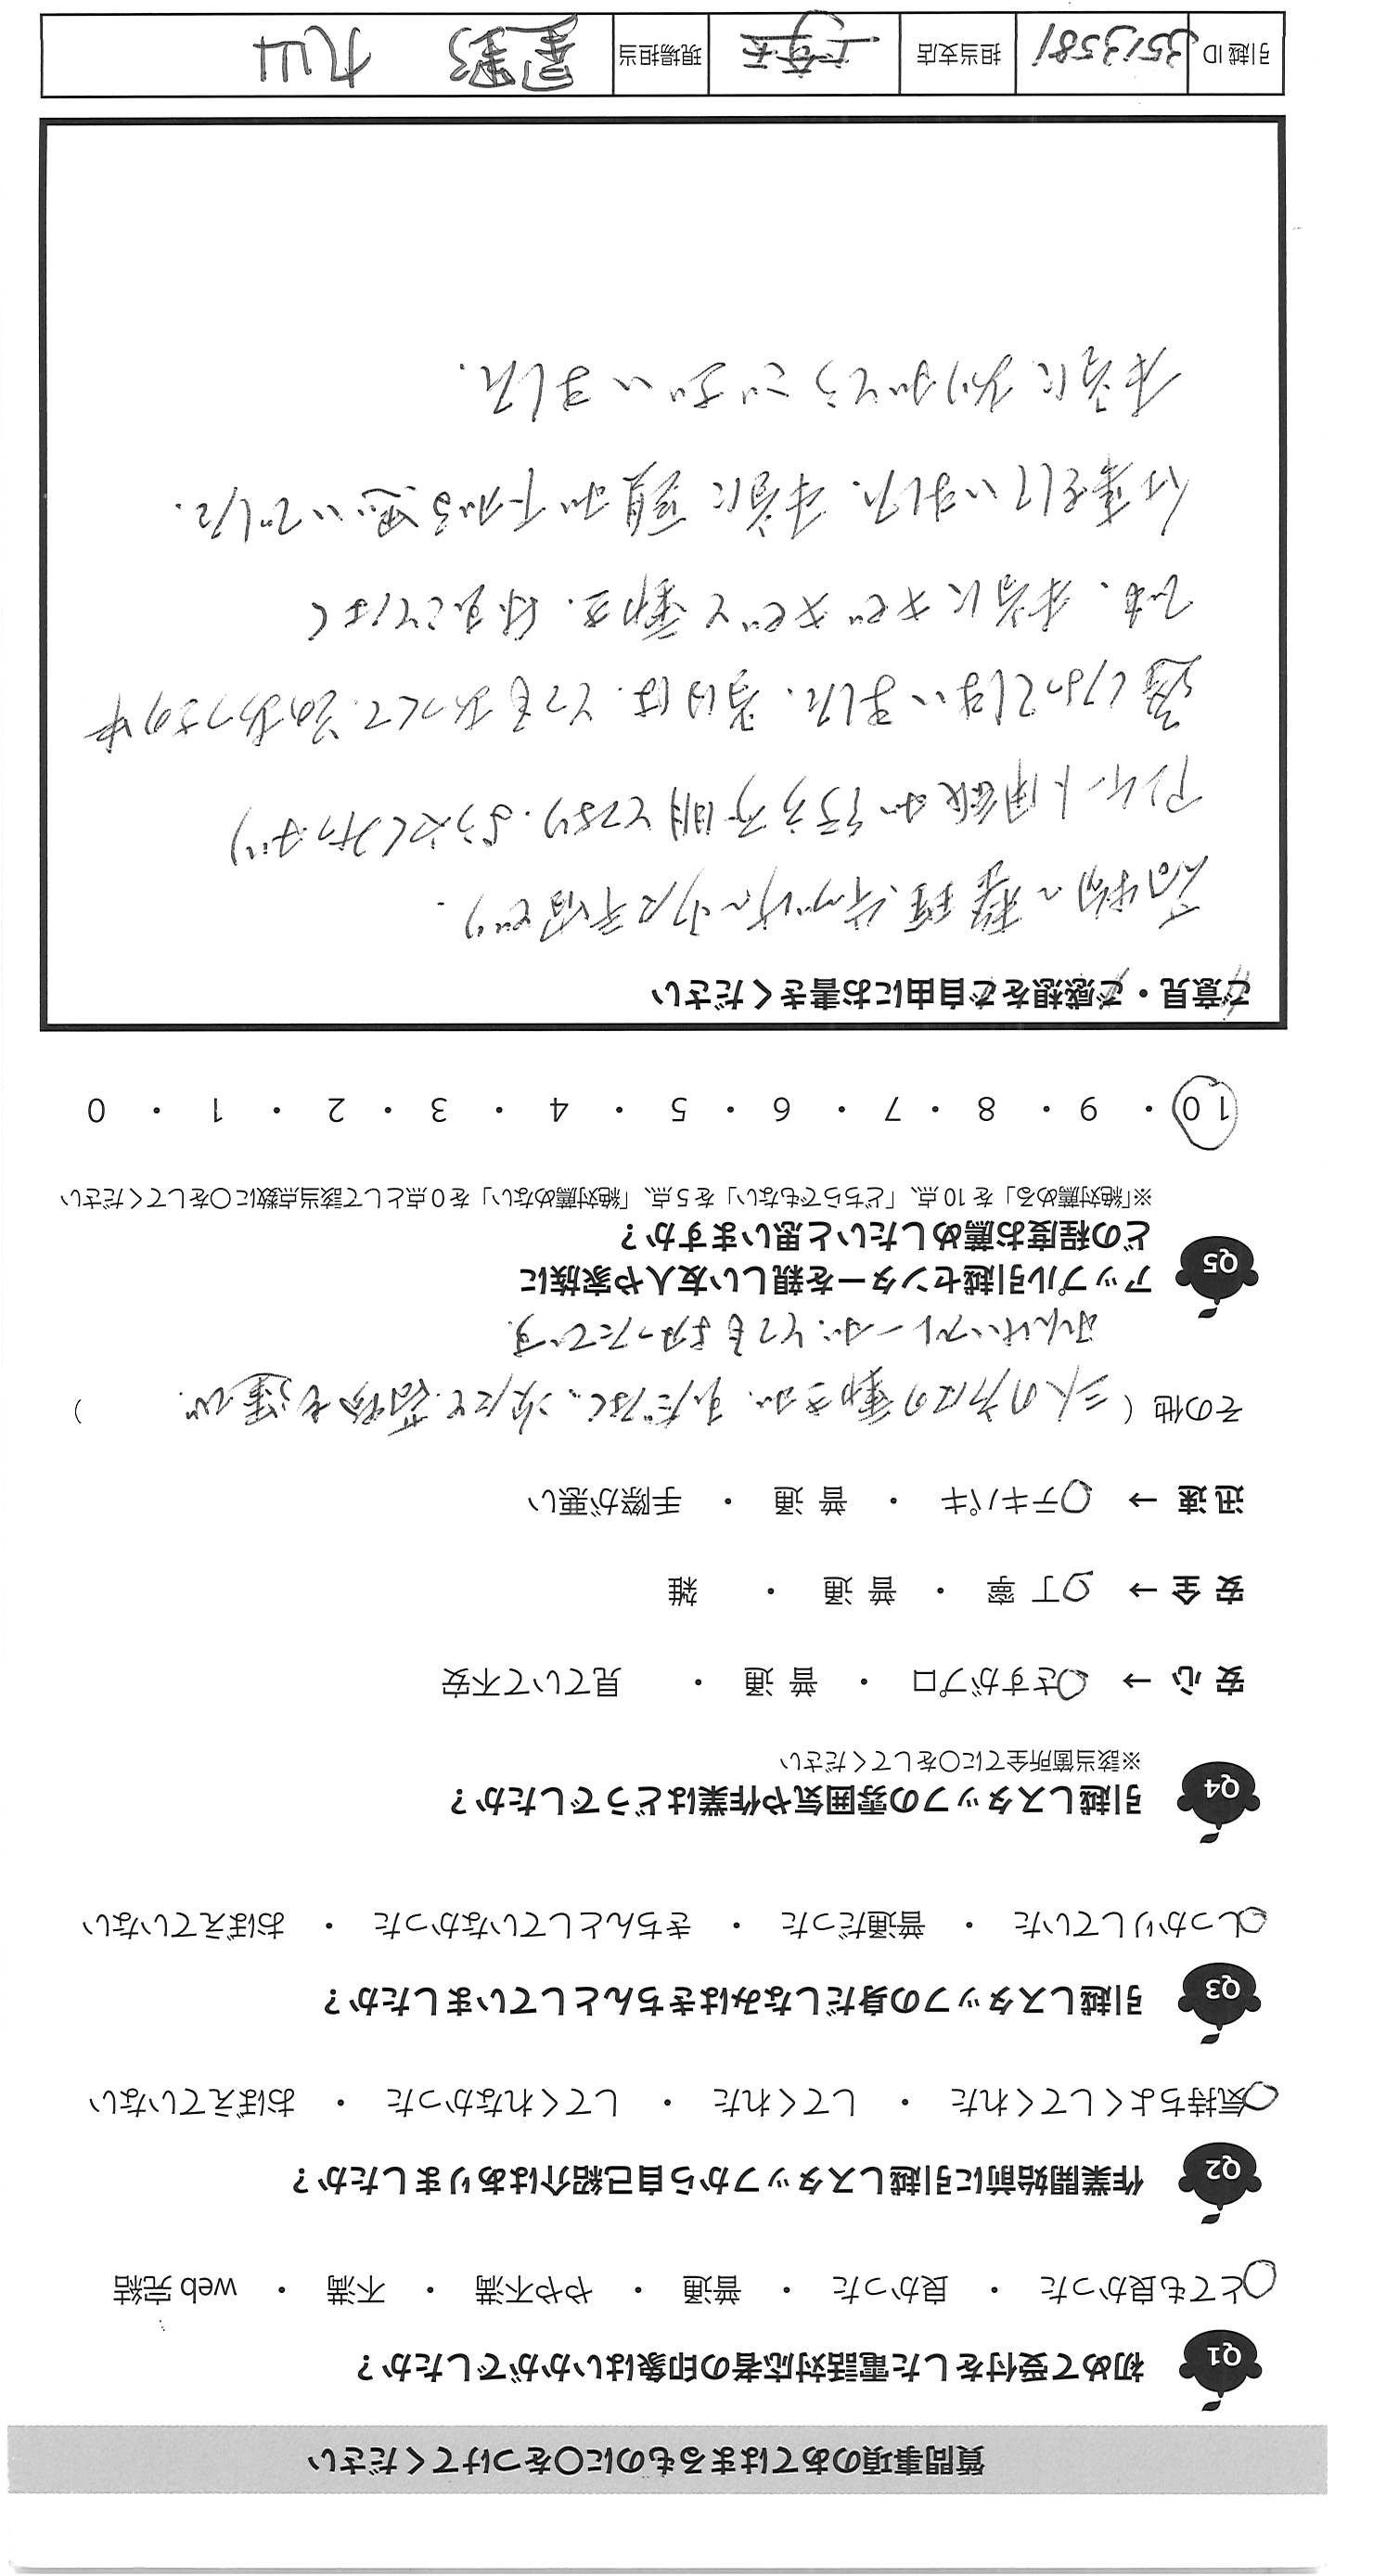 質問事項のあてはまるものに○をつけてください
Q1 初めて受付をした電話対応者の印象はいかがでしたか？
とても良かった ・ 良かった ・ 普通 ・ やや不満 ・ 不満 ・ web 完結
Q2 作業開始前に引越しスタッフから自己紹介はありましたか？
気持ちよくしてくれた ・ してくれた ・ してくれなかった ・ おぼえていない
Q3 引越しスタッフの身だしなみはきちんとしていましたか？
しっかりしていた ・ 普通だった ・ きちんとしていなかった ・ おぼえていない
Q4 引越しスタッフの雰囲気や作業はどうでしたか？
※該当箇所全てに○をしてください
安心 → さすがプロ ・ 普通 ・ 見ていて不安
安全 → 丁寧 ・ 普通 ・ 雑
迅速 → テキパキ ・ 普通 ・ 手際が悪い
その他（三人の方々の動きが、むだなく、次々と荷物を運び、）
れんけいプレーが、とてもよかったです。
Q5 アップル引越センターを親しい友人や家族に
どの程度お薦めしたいと思いますか？
※「絶対薦める」を 10 点、「どちらでもない」を 5 点、「絶対薦めない」を 0 点として該当点数に○をしてください
10 ・ 9 ・ 8 ・ 7 ・ 6 ・ 5 ・ 4 ・ 3 ・ 2 ・ 1 ・ 0
ご意見・ご感想をご自由にお書きください
荷物の整理、片づけの
アンケート用紙が行方不明となり、ようやくみつかり
遅くなってしまいました。当日は、とてもあつくて、そのあつさの中
でも、本当にキビキビと動き、休むことなく
作業をしていました。本当に頭が下がる思いでした。
本当にありがとうございました。
引越 ID 3513581 担当支店 現場担当 星野 丸山